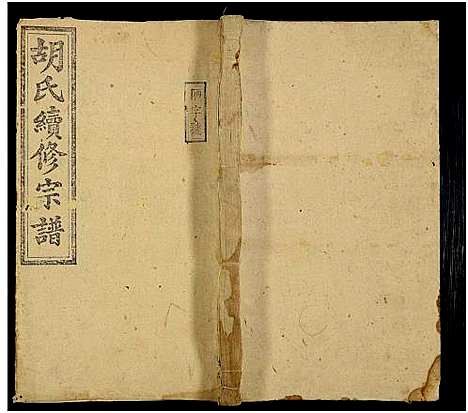 胡氏續修宗譜